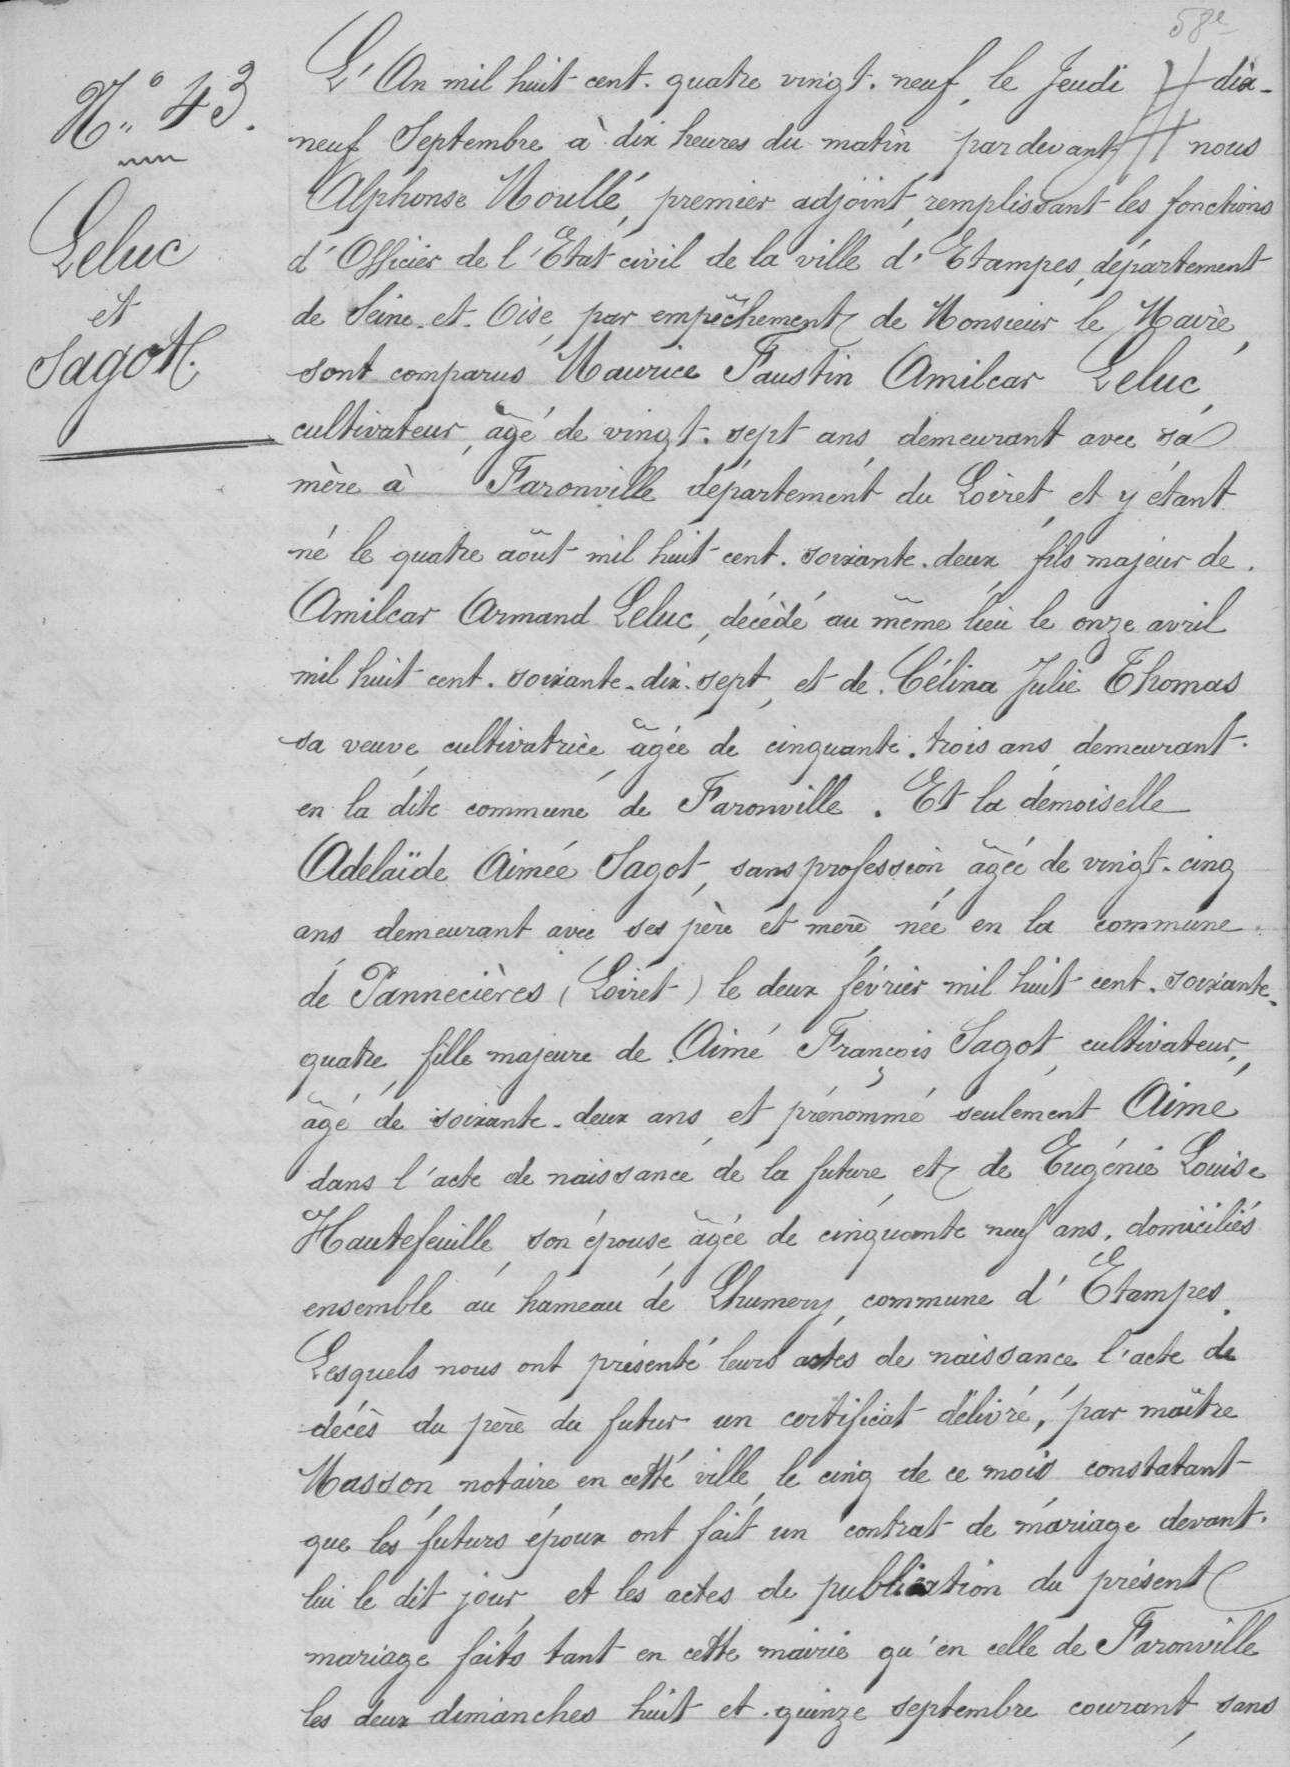 58e
N° 43.
Leluc
et
Sagot.
L'An mil huit cent. quatre vingt. neuf, le Jeudi dix-
neuf Septembre à dix heures du matin pardevant nous
Alphonse Moullé, premier adjoint, remplissant les fonctions
d'Officier de l'Etat civil de la ville d'Etampes, département
de Seine-et-Oise, par empêchement de Monsieur le Maire,
sont comparus Maurice Faustin Amilcar Leluc,
cultivateur, âgé de vingt. sept ans, demeurant avec sa
mère à Faronville département du Loiret, et y étant
né le quatre août mil huit cent. soixante. deux, fils majeur de.
Amilcar Armand Leluc, décédé au même lieu le onze avril
mil huit cent. soixante-dix. sept, et de Célina Julie Thomas
sa veuve, cultivatrice, âgée de cinquante. trois ans, demeurant.
en la dite commune de Faronville. Et la demoiselle
Adelaïde Aimée Sagot, sans profession, âgée de vingt-cinq
ans demeurant avec ses père et mère, née en la commune.
de Pannecières (Loiret) le deux février mil huit cent. soixante-
quatre, fille majeure de Aimé François Sagot, cultivateur,
âgé de soixante-deux ans, et prénommé seulement Aimé
dans l'acte de naissance de la future, et de Eugénie Louise
Hautefeuille, son épouse, âgée de cinquante neuf ans, domiciliés
ensemble au hameau de Lhumery, commune d'Etampes.
Lesquels nous ont présenté leurs actes de naissance, l'acte de
décès du père du futur, un certificat délivré, par maître
Masson, notaire en cette ville, le cinq de ce mois constatant
que les futurs époux ont fait un contrat de mariage devant.
lui le dit jour, et les actes de publication du présent
mariage faits tant en cette mairie qu'en celle de Faronville
les deux dimanches huit et quinze septembre courant, sans